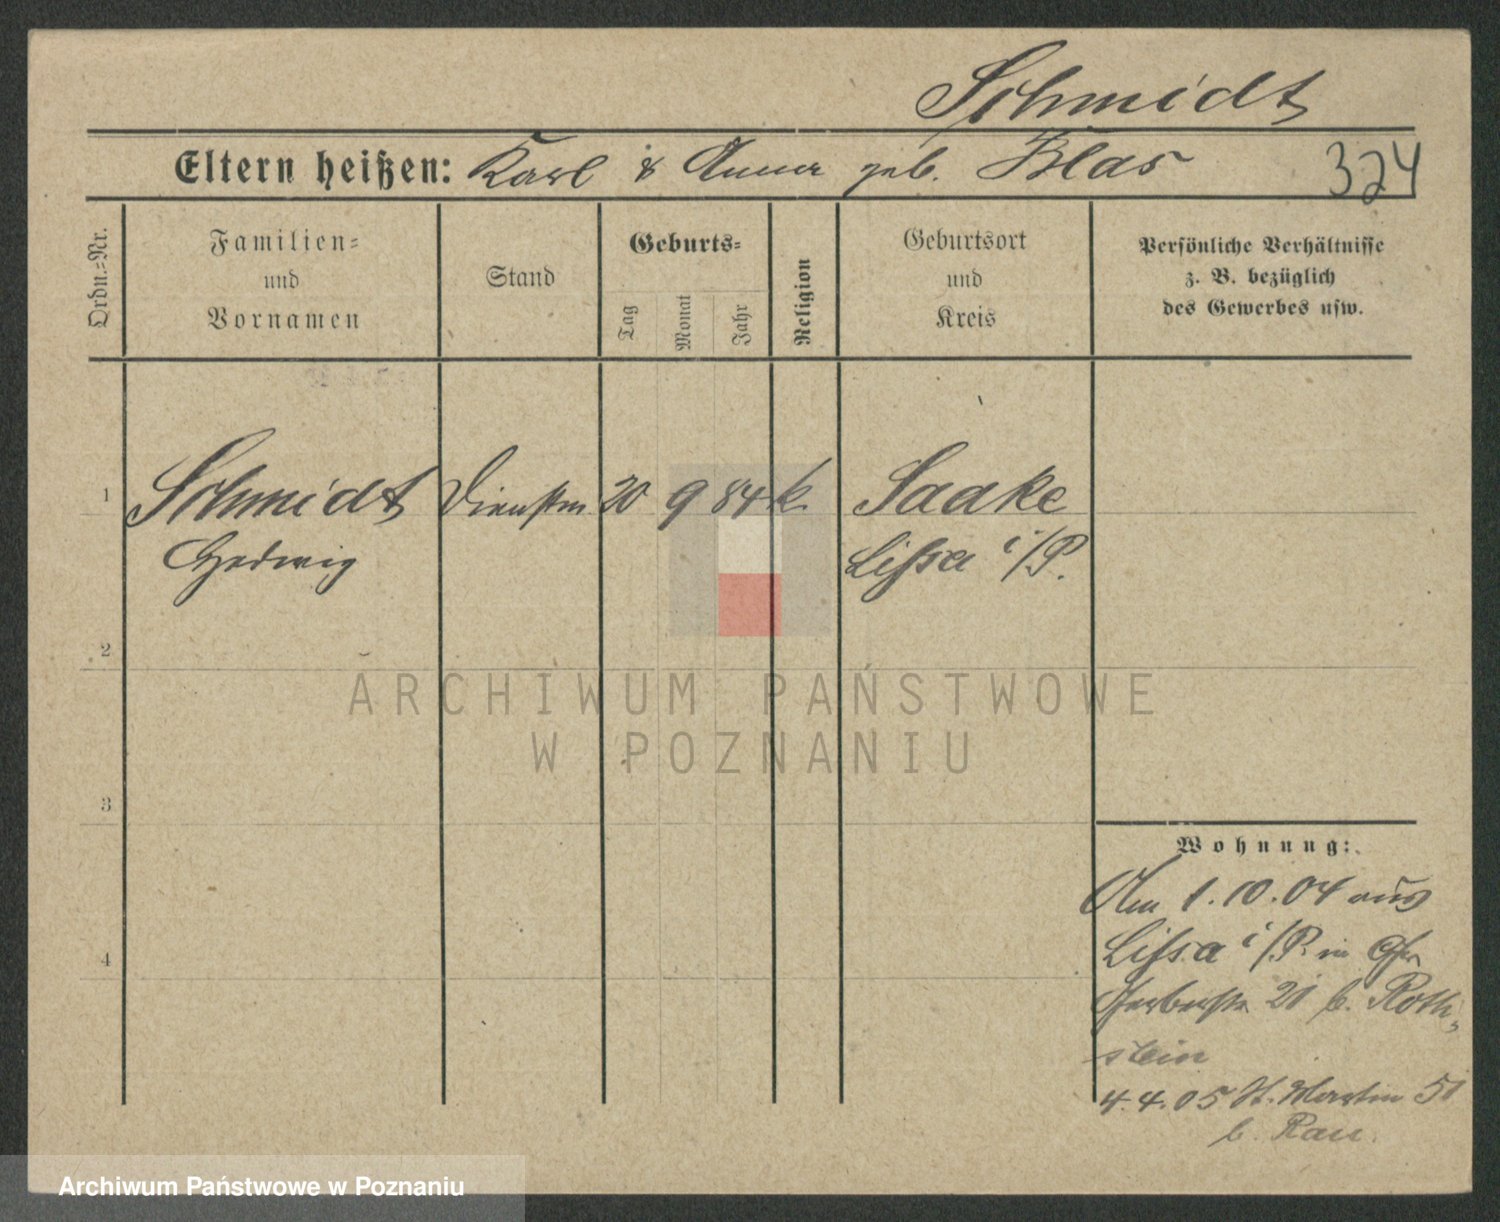 Schmidt
Eltern heißen: Karl & Anna geb. Klas
324
Ordn.=Nr.
Familien=
und
Vornamen
Stand
Geburts=
Tag
Monat
Jahr
Religion
Geburtsort
und
Kreis
Persönliche Verhältnisse
z. B. bezüglich
des Gewerbes usw.
1 Schmidt Dienstm 20 9 84 k. Saake
Hedwig Lissa i/P.
2
ARCHIWUM PAŃSTWOWE
W POZNANIU
3
Wohnung:
Am 1.10.04 aus
4
Lissa i/P. in
Gerberstr 21 b. Roth=
stein
4.4.05 St. Martin 51
b. Rau
Archiwum Państwowe w Poznaniu